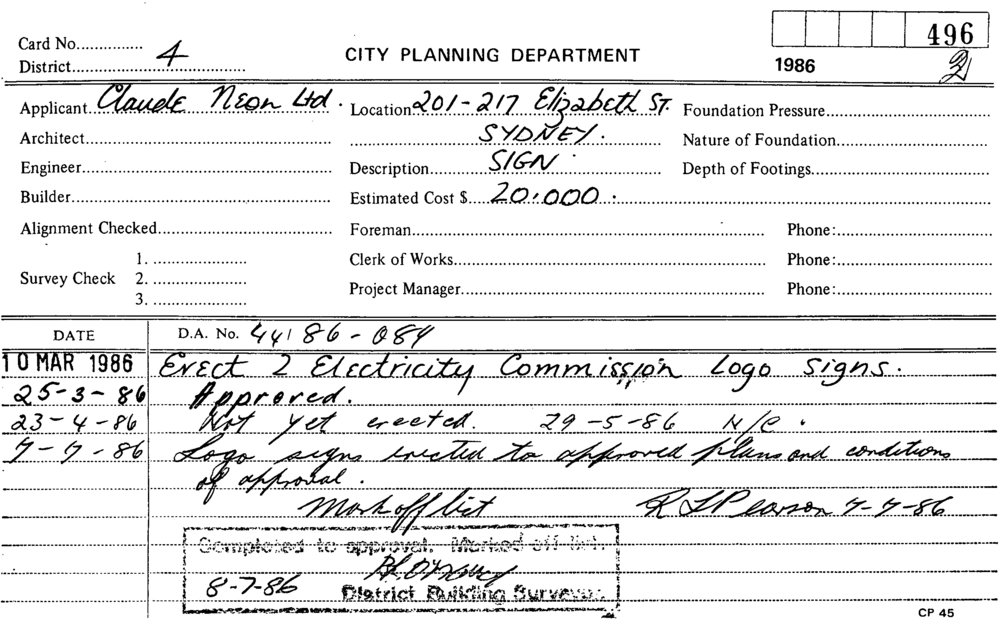 Card No............... 4
District...............
CITY PLANNING DEPARTMENT
496
1986 2
Applicant Claude Neon Ltd. Location 201-217 Elizabeth St. Foundation Pressure
Architect SYDNEY. Nature of Foundation
Engineer Description SIGN Depth of Footings
Builder Estimated Cost $ 20,000.
Alignment Checked Foreman Phone:
Survey Check 1. Clerk of Works Phone:
2.
3. Project Manager Phone:
DATE D.A. No. 44/86-084
10 MAR 1986 Erect 2 Electricity Commission Logo signs.
25-3-86 Approved.
23-4-86 Not yet erected. 29-5-86 N/C.
7-7-86 Logo signs erected to approved plans and conditions
of approval.
Mark off list R L Pearson 7-7-86
Completed to approval. Marked off list.
8-7-86 District Building Surveyor
CP 45